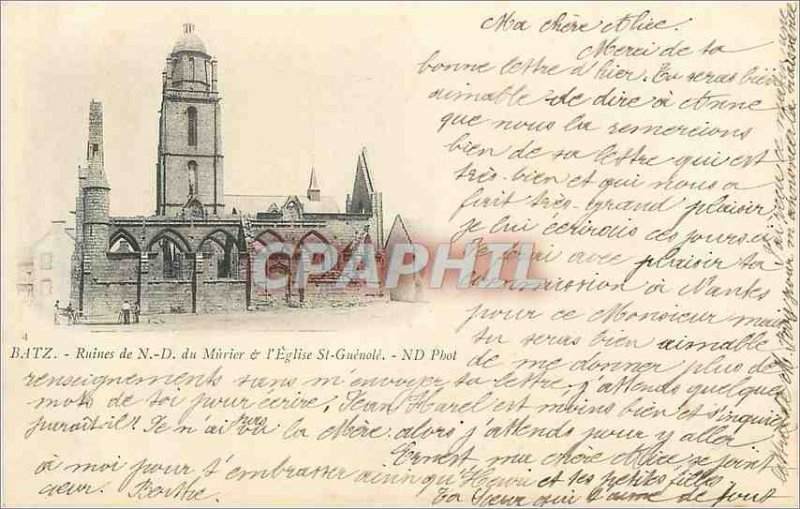 Ma chère Alice.
Merci de ta
bonne lettre d'hier. Tu seras bien
aimable de dire à Anne
que nous la remercions
bien de sa lettre qui est
très-bien et qui nous a
fait très-grand plaisir,
je lui écrirais ces jours-ci
Je ferai avec plaisir ta
commission à Nantes
pour ce Monsieur mais
tu seras bien aimable
de me donner plus de
CPAPHIL.com
BATZ. - Ruines de N.-D. du Mûrier & l'Église St-Guénolé. - ND Phot
renseignements sans m'envoyer sa lettre. j'attends quelques
mots de toi pour écrire. Jean Harel est moins bien et s'inquiète
paraît-il! Je n'ai pas vu la Mère. alors j'attends pour y aller
Ernest ma chère Alice se joint
à moi pour t'embrasser ainsi qu'Henri et tes petites filles
cœur. Berthe.
Ta Sœur qui t'aime de tout